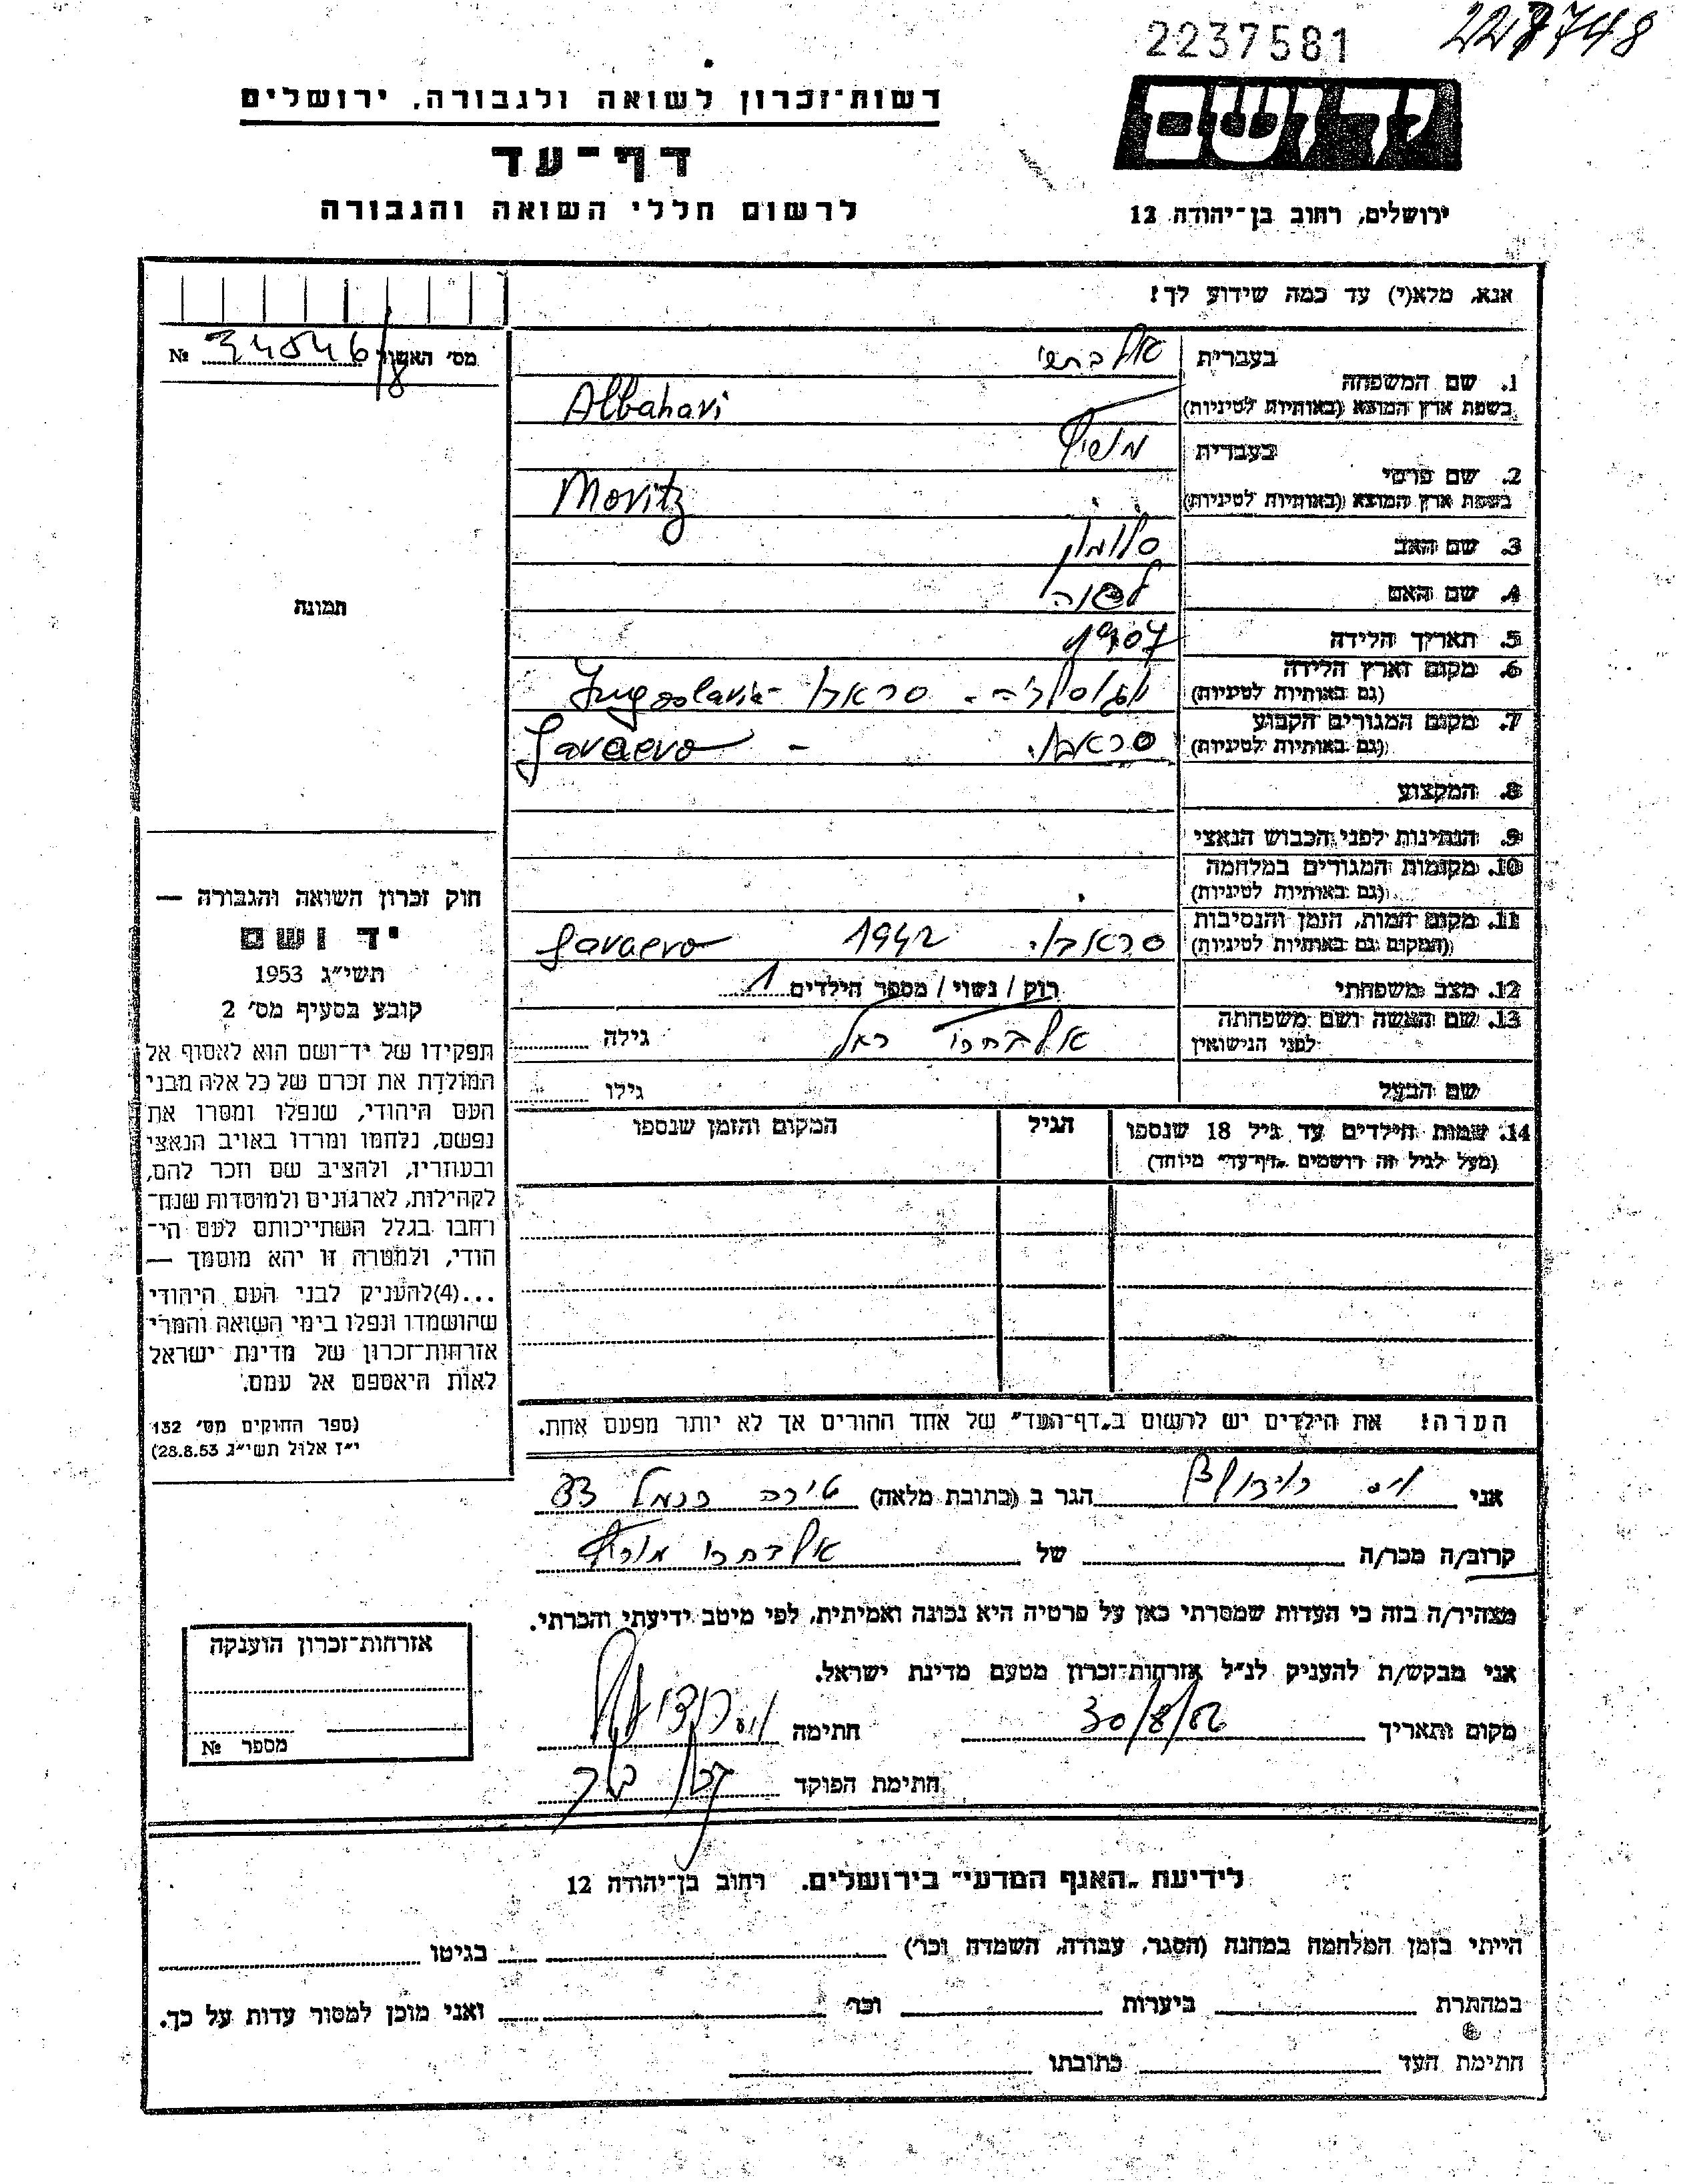 2237581
228748
רשות־זכרון לשואה ולגבורה, ירושלים
יד ושם
דף־עד
לרשום חללי השואה והגבורה
ירושלים, רחוב בן־יהודה 12
אנא, מלא(י) עד כמה שידוע לך!
מס׳ האשור № 34546/8
1. שם המשפחה
בעברית
בשפת ארץ המוצא (באותיות לטיניות) Albahari
2. שם פרטי
בעברית
בשפת ארץ המוצא (באותיות לטיניות) Moritz
3. שם האב סלומון
4. שם האם
תמונה
5. תאריך הלידה 1907
6. מקום וארץ הלידה
(גם באותיות לטיניות) Jugoslavia -
7. מקום המגורים הקבוע
(גם באותיות לטיניות) - Saraevo
8. המקצוע
9. הנתינות לפני הכבוש הנאצי
10. מקומות המגורים במלחמה
(גם באותיות לטיניות)
11. מקום המות, הזמן והנסיבות
(המקום גם באותיות לטיניות) 1942 Saraevo
12. מצב משפחתי רוק / נשוי / מספר הילדים 1
13. שם האשה ושם משפחתה
לפני הנישואין אלבחרי רחל גילה
שם הבעל גילו
14. שמות הילדים עד גיל 18 שנספו
(מעל לגיל זה רושמים „דף־עד״ מיוחד)
הגיל
המקום והזמן שנספו
חוק זכרון השואה והגבורה —
יד ושם
תשי״ג 1953
קובע בסעיף מס׳ 2
תפקידו של יד־ושם הוא לאסוף אל
המולדת את זכרם של כל אלה מבני
העם היהודי, שנפלו ומסרו את
נפשם, נלחמו ומרדו באויב הנאצי
ובעוזריו, ולהציב שם וזכר להם,
לקהילות, לארגונים ולמוסדות שנח־
רבו בגלל השתייכותם לעם הי־
הודי, ולמטרה זו יהא מוסמך —
...(4)להעניק לבני העם היהודי
שהושמדו ונפלו בימי השואה והמרי
אזרחות־זכרון של מדינת ישראל
לאות היאספם אל עמם.
(ספר החוקים מס׳ 132
י״ז אלול תשי״ג 28.8.53)
הערה! את הילדים יש לרשום ב„דף־העד״ של אחד ההורים אך לא יותר מפעם אחת.
אני הגר ב (כתובת מלאה) טירה כרמל
קרוב/ה מכר/ה של אלבחרי מוריץ
מצהיר/ה בזה כי העדות שמסרתי כאן על פרטיה היא נכונה ואמיתית, לפי מיטב ידיעתי והכרתי.
אני מבקש/ת להעניק לנ״ל אזרחות־זכרון מטעם מדינת ישראל.
מקום ותאריך חתימה
חתימת הפוקד
אזרחות־זכרון הוענקה
מספר №
לידיעת „האגף המדעי״ בירושלים. רחוב בן־יהודה 12
הייתי בזמן המלחמה במחנה (הסגר, עבודה, השמדה וכר׳) בגיטו
במחתרת ביערות וכר׳ ואני מוכן למסור עדות על כך.
חתימת העד כתובתו